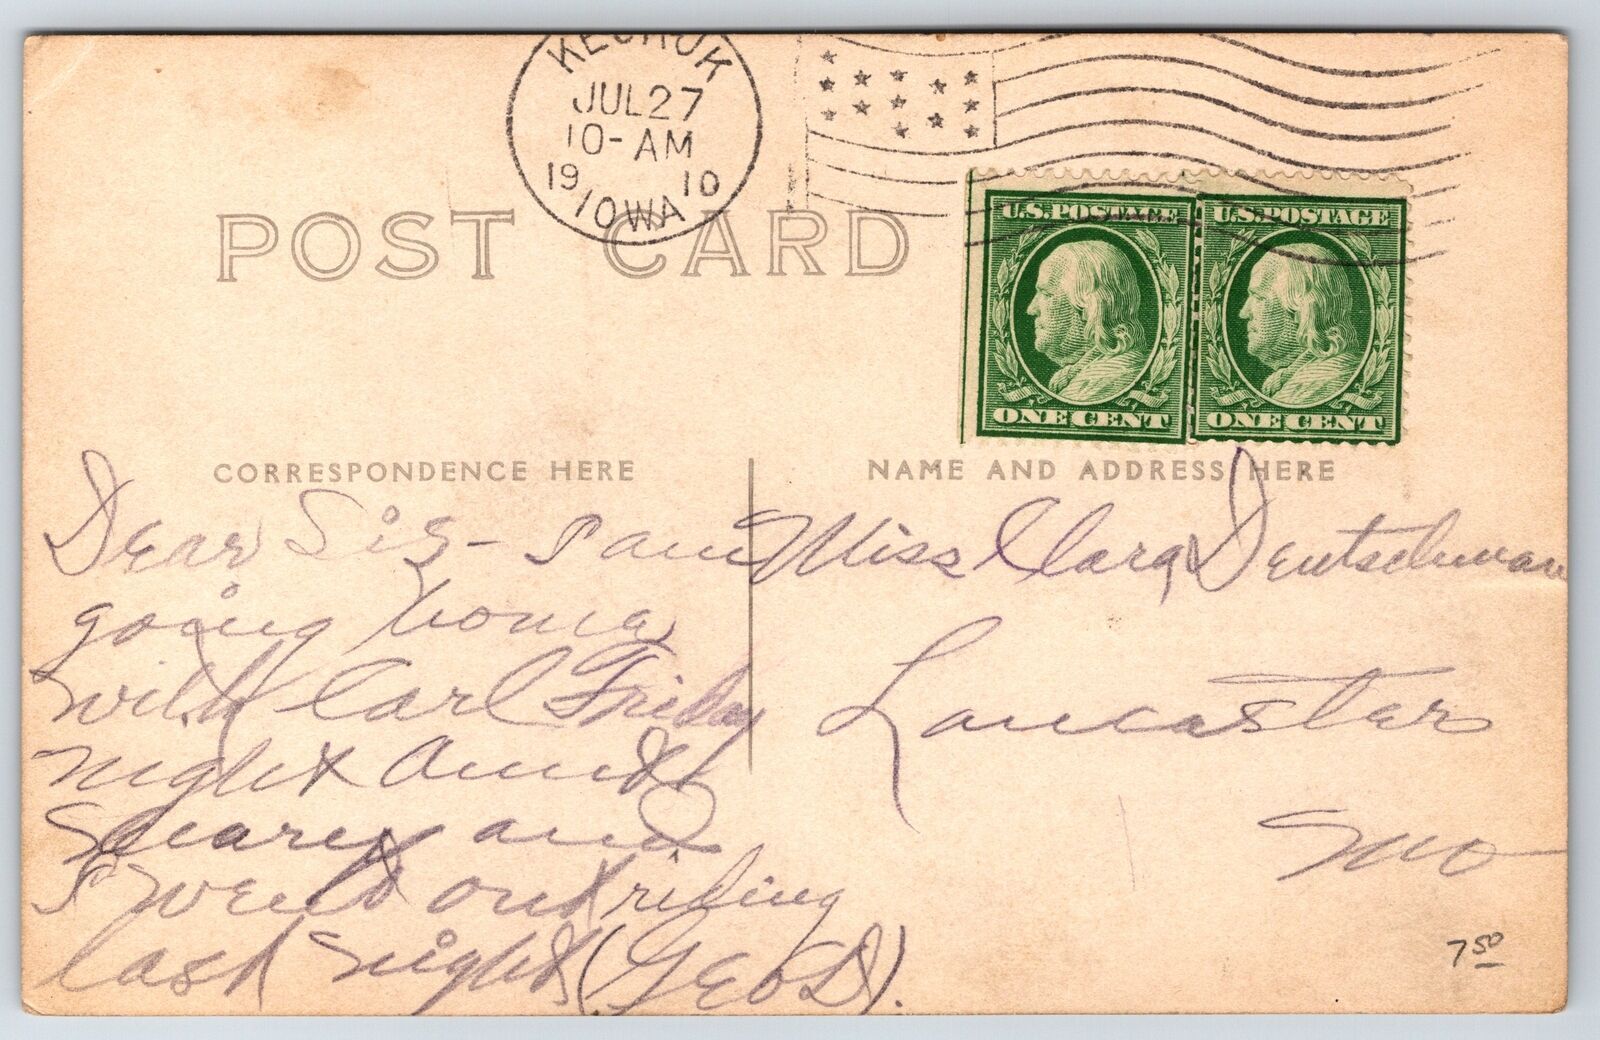 KEOKUK
JUL 27
10-AM
19 10
IOWA
POST CARD
U.S. POSTAGE U.S. POSTAGE
ONE CENT ONE CENT
CORRESPONDENCE HERE
NAME AND ADDRESS HERE
Dear Sis - I am
going home
with Carl Friday
night
and
I went out riding
last night (Geo D).
Miss Clara Deutschman
Lancaster
Mo
7 50